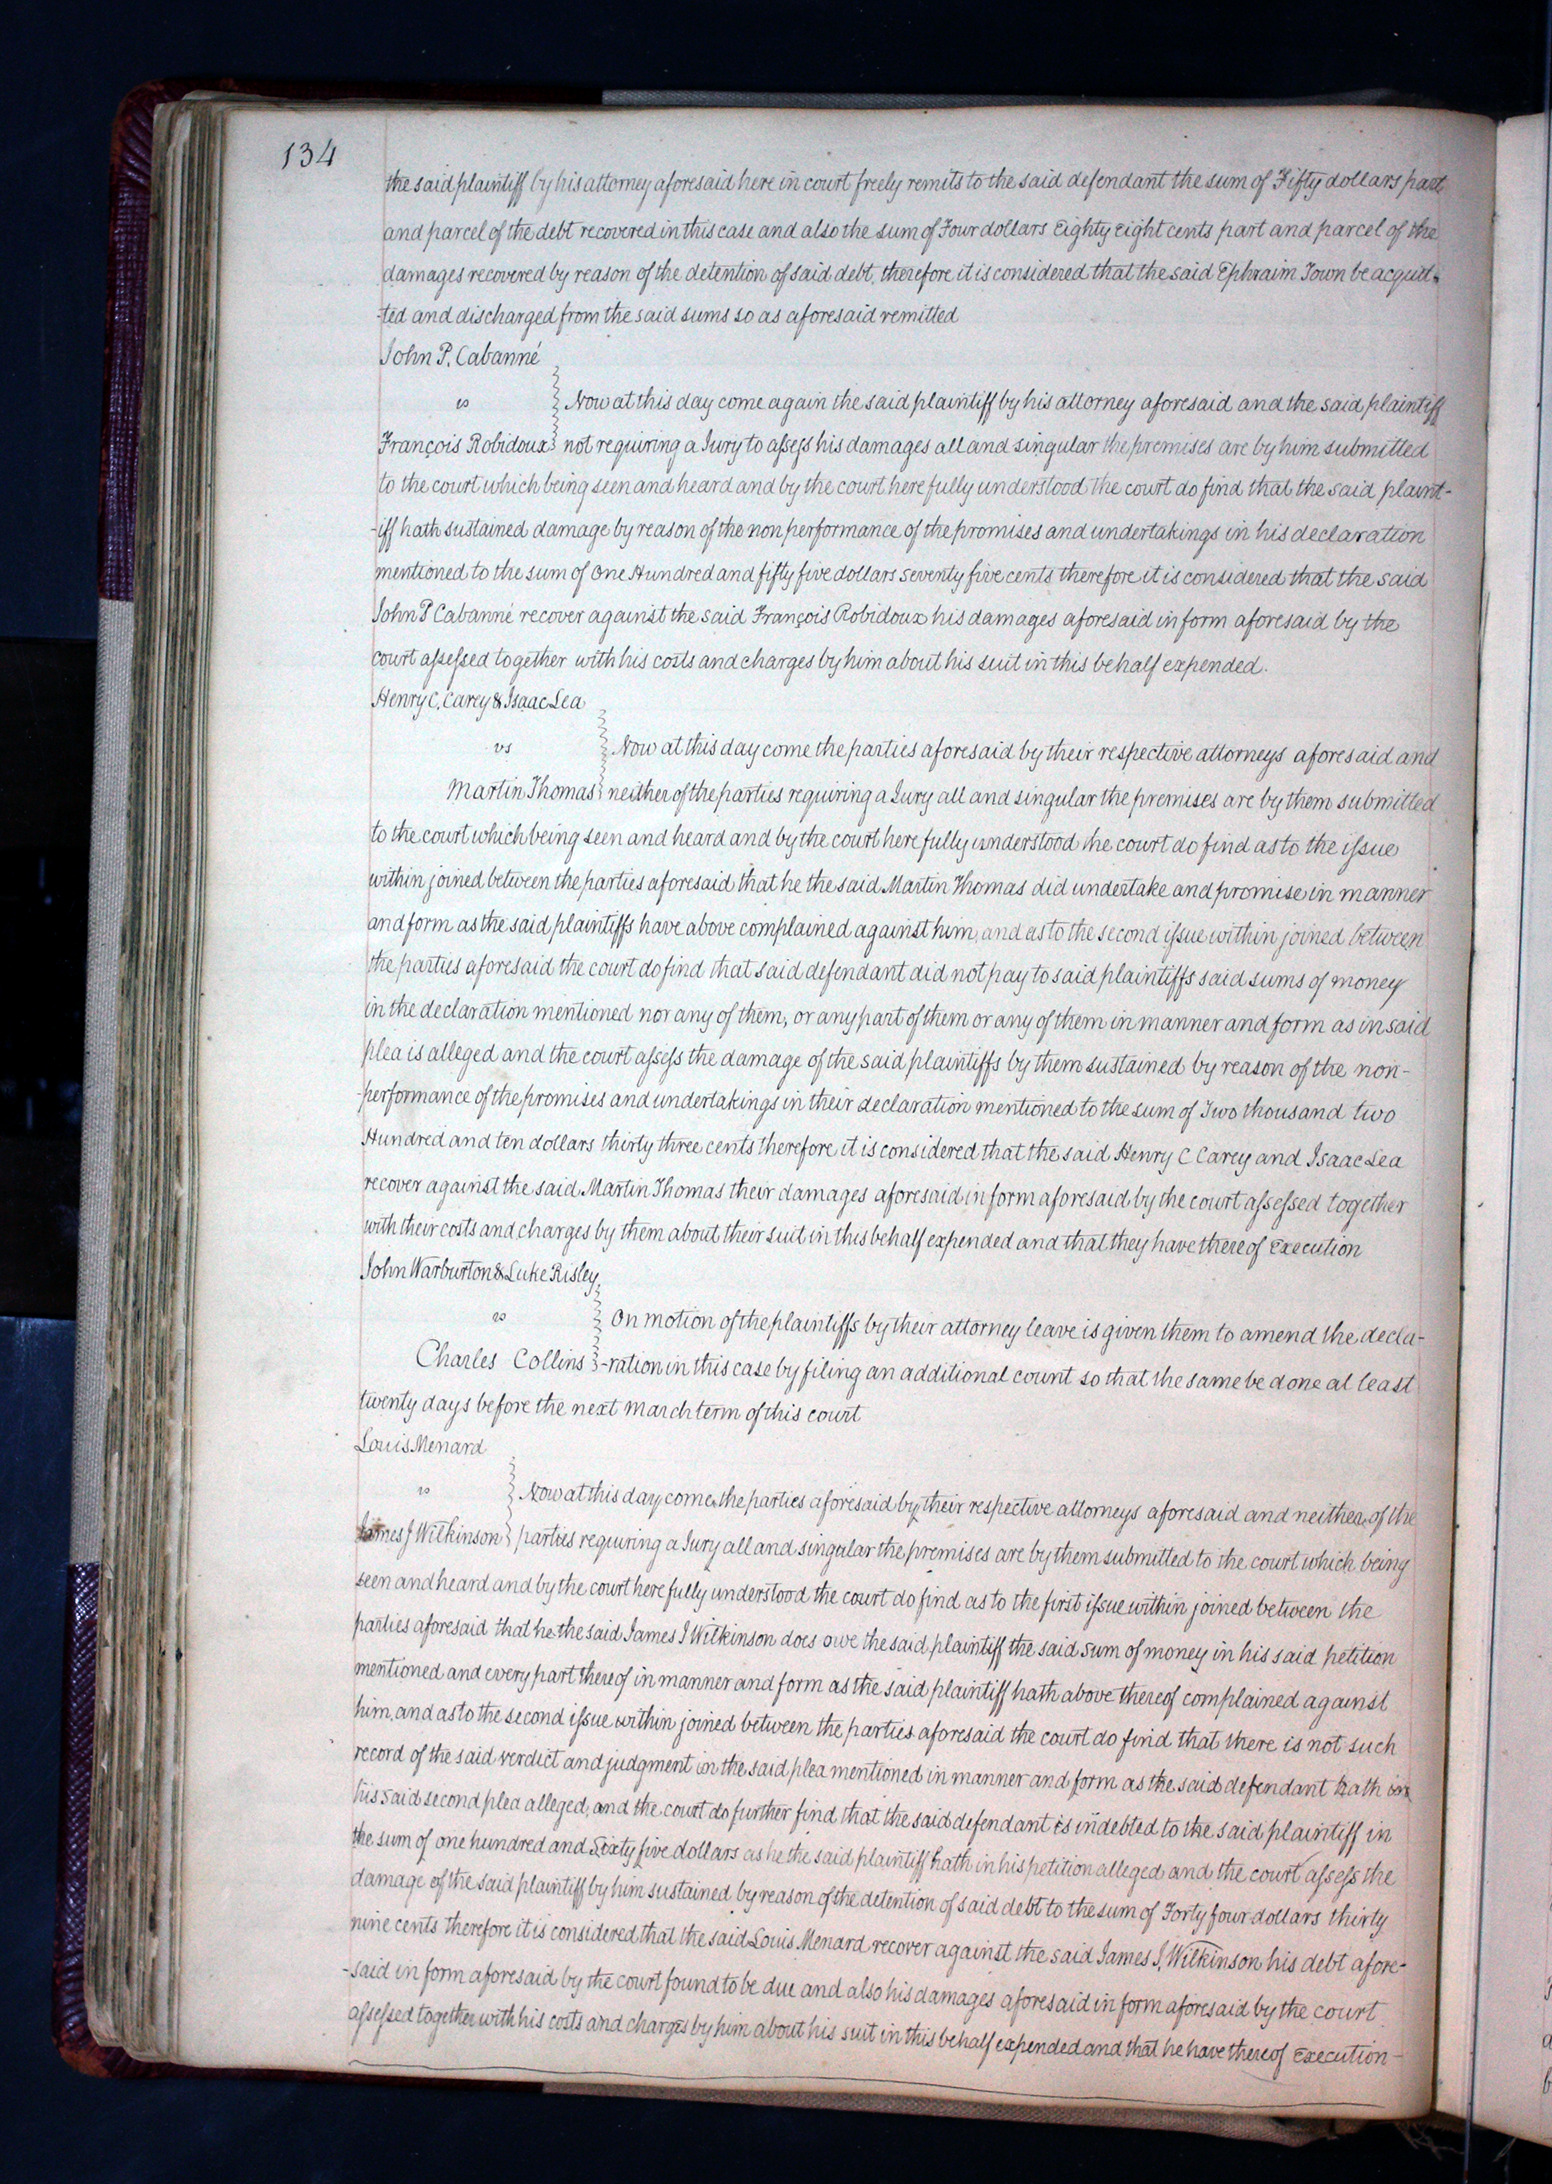 134
the said plaintiff by his attorney aforesaid here in court freely remits to the said defendant the sum of Fifty dollars part
and parcel of the debt recovered in this case and also the sum of Four dollars Eighty eight cents part and parcel of the
damages recovered by reason of the detention of said debt, therefore it is considered that the said Ephraim Town be acquit-
-ted and discharged from the said sums so as aforesaid remitted
John P. Cabanné
vs Now at this day come again the said plaintiff by his attorney aforesaid and the said plaintiff
François Robidoux not requiring a Jury to assess his damages all and singular the premises are by him submitted
to the court which being seen and heard and by the court here fully understood the court do find that the said plaint-
-iff hath sustained damage by reason of the non performance of the promises and undertakings in his declaration
mentioned to the sum of One Hundred and fifty five dollars seventy five cents therefore it is considered that the said
John P Cabanné recover against the said François Robidoux his damages aforesaid in form aforesaid by the
court assessed together with his costs and charges by him about his suit in this behalf expended.
Henry C. Carey & Isaac Lea
vs Now at this day come the parties aforesaid by their respective attorneys aforesaid and
Martin Thomas neither of the parties requiring a Jury all and singular the premises are by them submitted
to the court which being seen and heard and by the court here fully understood the court do find as to the issue
within joined between the parties aforesaid that he the said Martin Thomas did undertake and promise in manner
and form as the said plaintiffs have above complained against him, and as to the second issue within joined between
the parties aforesaid the court do find that said defendant did not pay to said plaintiffs said sums of money
in the declaration mentioned nor any of them, or any part of them or any of them in manner and form as in said
plea is alleged and the court assess the damage of the said plaintiffs by them sustained by reason of the non-
-performance of the promises and undertakings in their declaration mentioned to the sum of Two thousand two
Hundred and ten dollars thirty three cents therefore it is considered that the said Henry C Carey and Isaac Lea
recover against the said Martin Thomas their damages aforesaid in form aforesaid by the court assessed together
with their costs and charges by them about their suit in this behalf expended and that they have thereof Execution
John Warburton & Luke Risley
vs On motion of the plaintiffs by their attorney leave is given them to amend the decla-
Charles Collins -ration in this case by filing an additional count so that the same be done at least
twenty days before the next March term of this court
Louis Menard
vs Now at this day come the parties aforesaid by their respective attorneys aforesaid and neither of the
James J Wilkinson parties requiring a Jury all and singular the premises are by them submitted to the court which being
seen and heard and by the court here fully understood the court do find as to the first issue within joined between the
parties aforesaid that he the said James J Wilkinson does owe the said plaintiff the said sum of money in his said petition
mentioned and every part thereof in manner and form as the said plaintiff hath above thereof complained against
him, and as to the second issue within joined between the parties aforesaid the court do find that there is not such
record of the said verdict and judgment in the said plea mentioned in manner and form as the said defendant hath in
his said second plea alleged, and the court do further find that the said defendant is indebted to the said plaintiff in
the sum of one hundred and Sixty five dollars as he the said plaintiff hath in his petition alleged and the court assess the
damage of the said plaintiff by him sustained by reason of the detention of said debt to the sum of Forty four dollars thirty
nine cents therefore it is considered that the said Louis Menard recover against the said James J. Wilkinson his debt afore-
-said in form aforesaid by the court found to be due and also his damages aforesaid in form aforesaid by the court
assessed together with his costs and charges by him about his suit in this behalf expended and that he have thereof Execution-